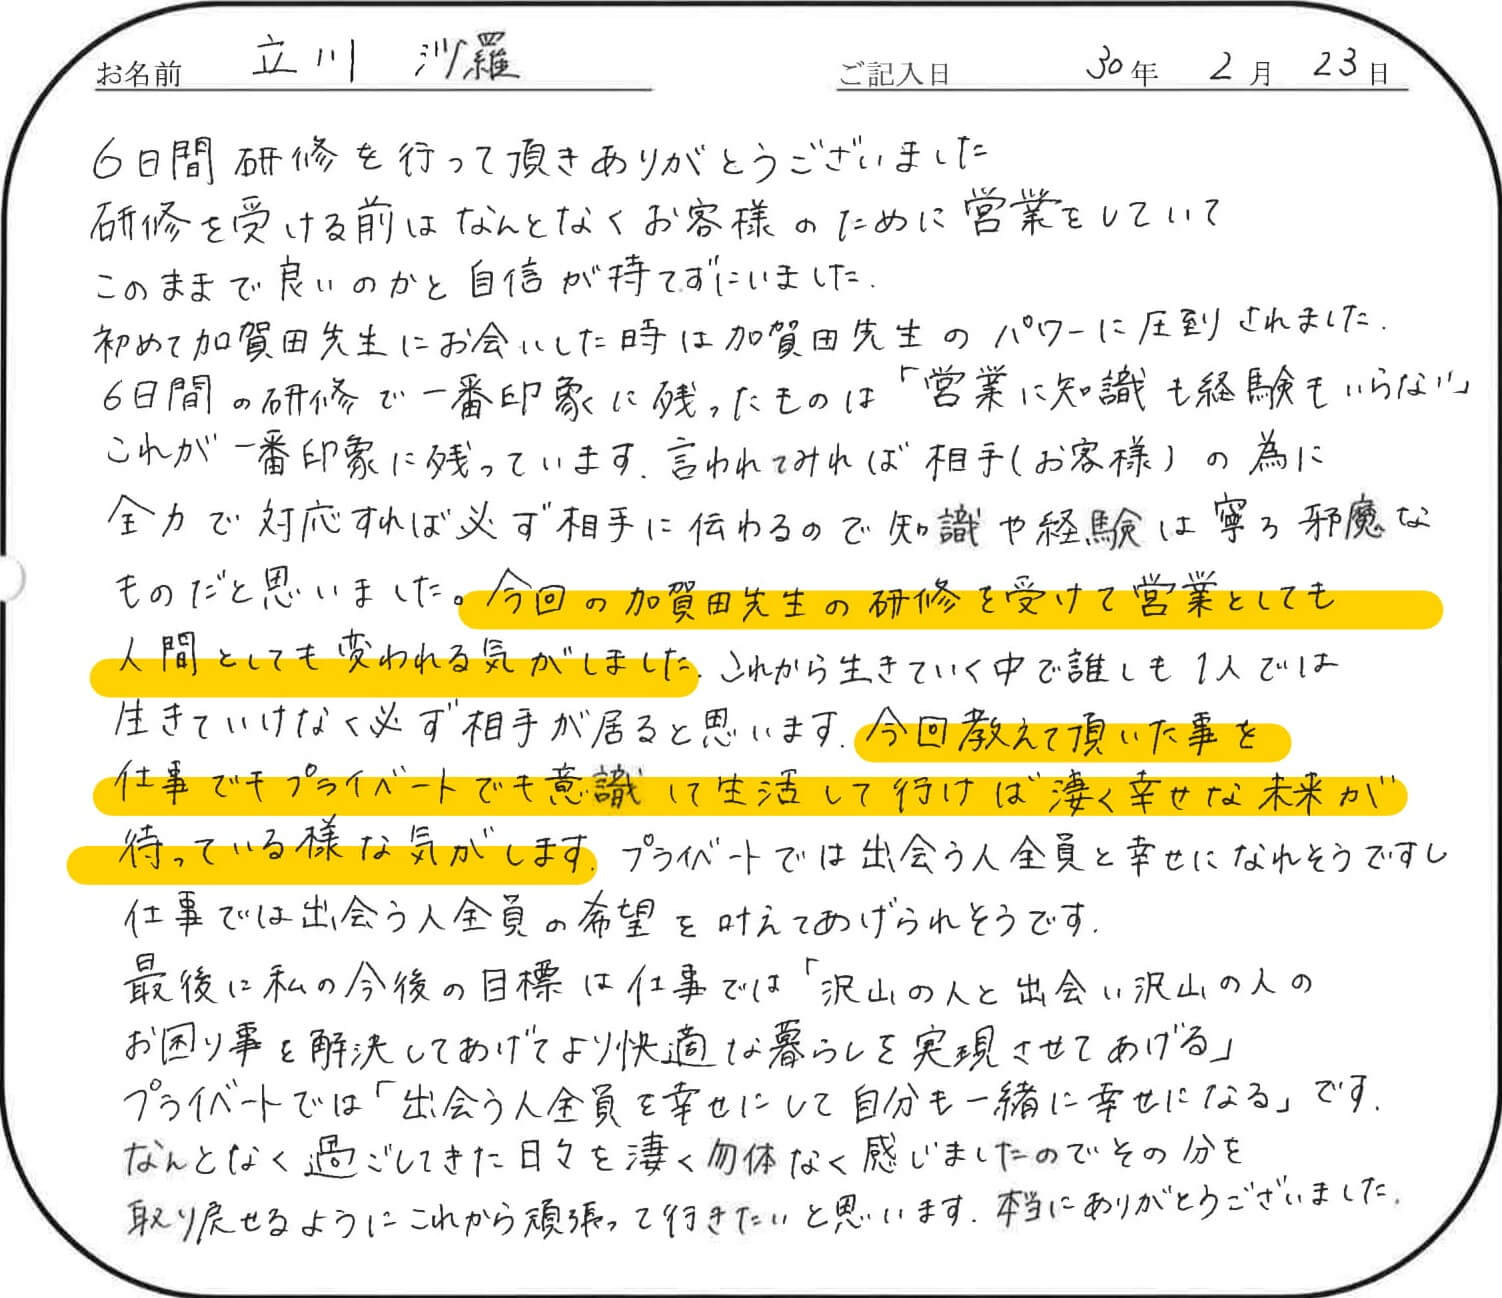 お名前 立川 沙羅 ご記入日 30年 2月 23日
6日間研修を行って頂きありがとうございました
研修を受ける前はなんとなくお客様のために営業をしていて
このままで良いのかと自信が持てずにいました.
初めて加賀田先生にお会いした時は加賀田先生のパワーに圧倒されました.
6日間の研修で一番印象に残ったものは「営業に知識も経験もいらない」
これが一番印象に残っています.言われてみれば相手(お客様)の為に
全力で対応すれば必ず相手に伝わるので知識や経験は寧ろ邪魔な
ものだと思いました。今回の加賀田先生の研修を受けて営業としても
人間としても変われる気がしました.これから生きていく中で誰しも1人では
生きていけなく必ず相手が居ると思います.今回教えて頂いた事を
仕事でもプライベートでも意識して生活して行けば凄く幸せな未来が
待っている様な気がします.プライベートでは出会う人全員と幸せになれそうですし
仕事では出会う人全員の希望を叶えてあげられそうです.
最後に私の今後の目標は仕事では「沢山の人と出会い沢山の人の
お困り事を解決してあげてより快適な暮らしを実現させてあげる」
プライベートでは「出会う人全員を幸せにして自分も一緒に幸せになる」です.
なんとなく過ごしてきた日々を凄く勿体なく感じましたのでその分を
取り戻せるようにこれから頑張って行きたいと思います.本当にありがとうございました.